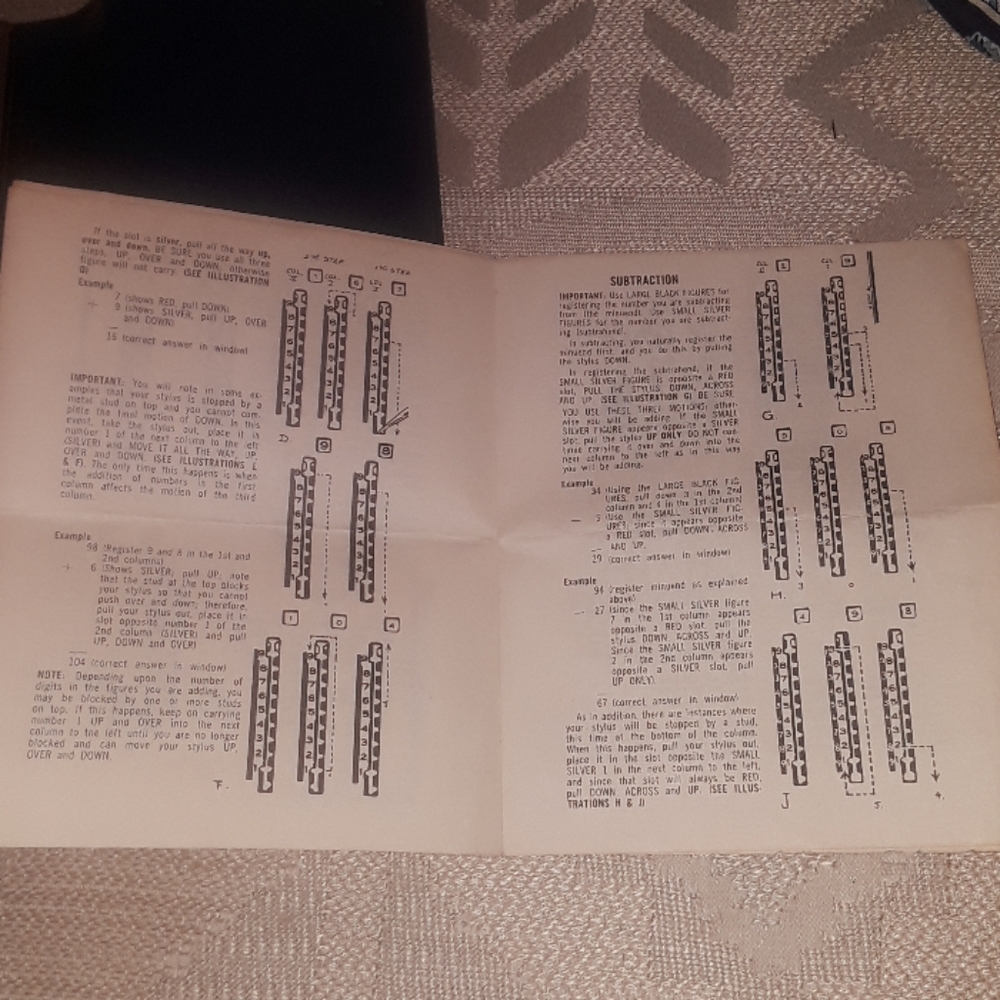 If the slot is silver, pull all the way up,
over and down. BE SURE you use all three
steps, UP, OVER and DOWN, otherwise
figure will not carry. (SEE ILLUSTRATION
D)
Example
7 (shows RED, pull DOWN)
+ 9 (shows SILVER, pull UP, OVER
and DOWN)
16 (correct answer in window)
IMPORTANT: You will note in some ex-
amples that your stylus is stopped by a
metal stud on top and you cannot com-
plete the final motion of DOWN. In this
event, take the stylus out, place it in
number 1 of the next column to the left
(SILVER) and MOVE IT ALL THE WAY, UP
OVER and DOWN. (SEE ILLUSTRATIONS E
& F). The only time this happens is when
the addition of numbers in the first
column affects the motion of the third
column.
Example
98 (Register 9 and 8 in the 1st and
2nd columns)
+ 6 (Shows SILVER, pull UP, note
that the stud at the top blocks
your stylus so that you cannot
push over and down; therefore,
pull your stylus out, place it in
slot opposite number 1 of the
2nd column (SILVER) and pull
UP, DOWN and OVER)
104 (correct answer in window)
NOTE: Depending upon the number of
digits in the figures you are adding, you
may be blocked by one or more studs
on top. If this happens, keep on carrying
number 1 UP and OVER into the next
column to the left until you are no longer
blocked and can move your stylus UP,
OVER and DOWN.
D.
F.
SUBTRACTION
IMPORTANT: Use LARGE BLACK FIGURES for
registering the number you are subtracting
from (the minuend). Use SMALL SILVER
FIGURES for the number you are subtract-
ing (subtrahend).
In subtracting, you naturally register the
minuend first, and you do this by pulling
the stylus DOWN.
In registering the subtrahend, if the
SMALL SILVER FIGURE is opposite a RED
slot, PULL THE STYLUS DOWN, ACROSS
AND UP. (SEE ILLUSTRATION G) BE SURE
YOU USE THESE THREE MOTIONS; other-
wise you will be adding. If the SMALL
SILVER FIGURE appears opposite a SILVER
slot, pull the stylus UP ONLY. DO NOT con-
tinue carrying it over and down into the
next column to the left as in this way
you will be adding.
Example
34 (Using the LARGE BLACK FIG-
URES, pull down 3 in the 2nd
column and 4 in the 1st column)
— 5 (Use the SMALL SILVER FIG-
URES; since it appears opposite
a RED slot, pull DOWN, ACROSS
AND UP.
29 (correct answer in window)
Example
94 (register minuend as explained
above)
— 27 (since the SMALL SILVER figure
7 in the 1st column appears
opposite a RED slot, pull the
stylus DOWN, ACROSS and UP.
Since the SMALL SILVER figure
2 in the 2nd column appears
opposite a SILVER slot, pull
UP ONLY).
67 (correct answer in window)
As in addition, there are instances where
your stylus will be stopped by a stud,
this time at the bottom of the column.
When this happens, pull your stylus out,
place it in the slot opposite the SMALL
SILVER 1 in the next column to the left,
and since that slot will always be RED,
pull DOWN, ACROSS and UP. (SEE ILLUS-
TRATIONS H & J)
G.
H.
J